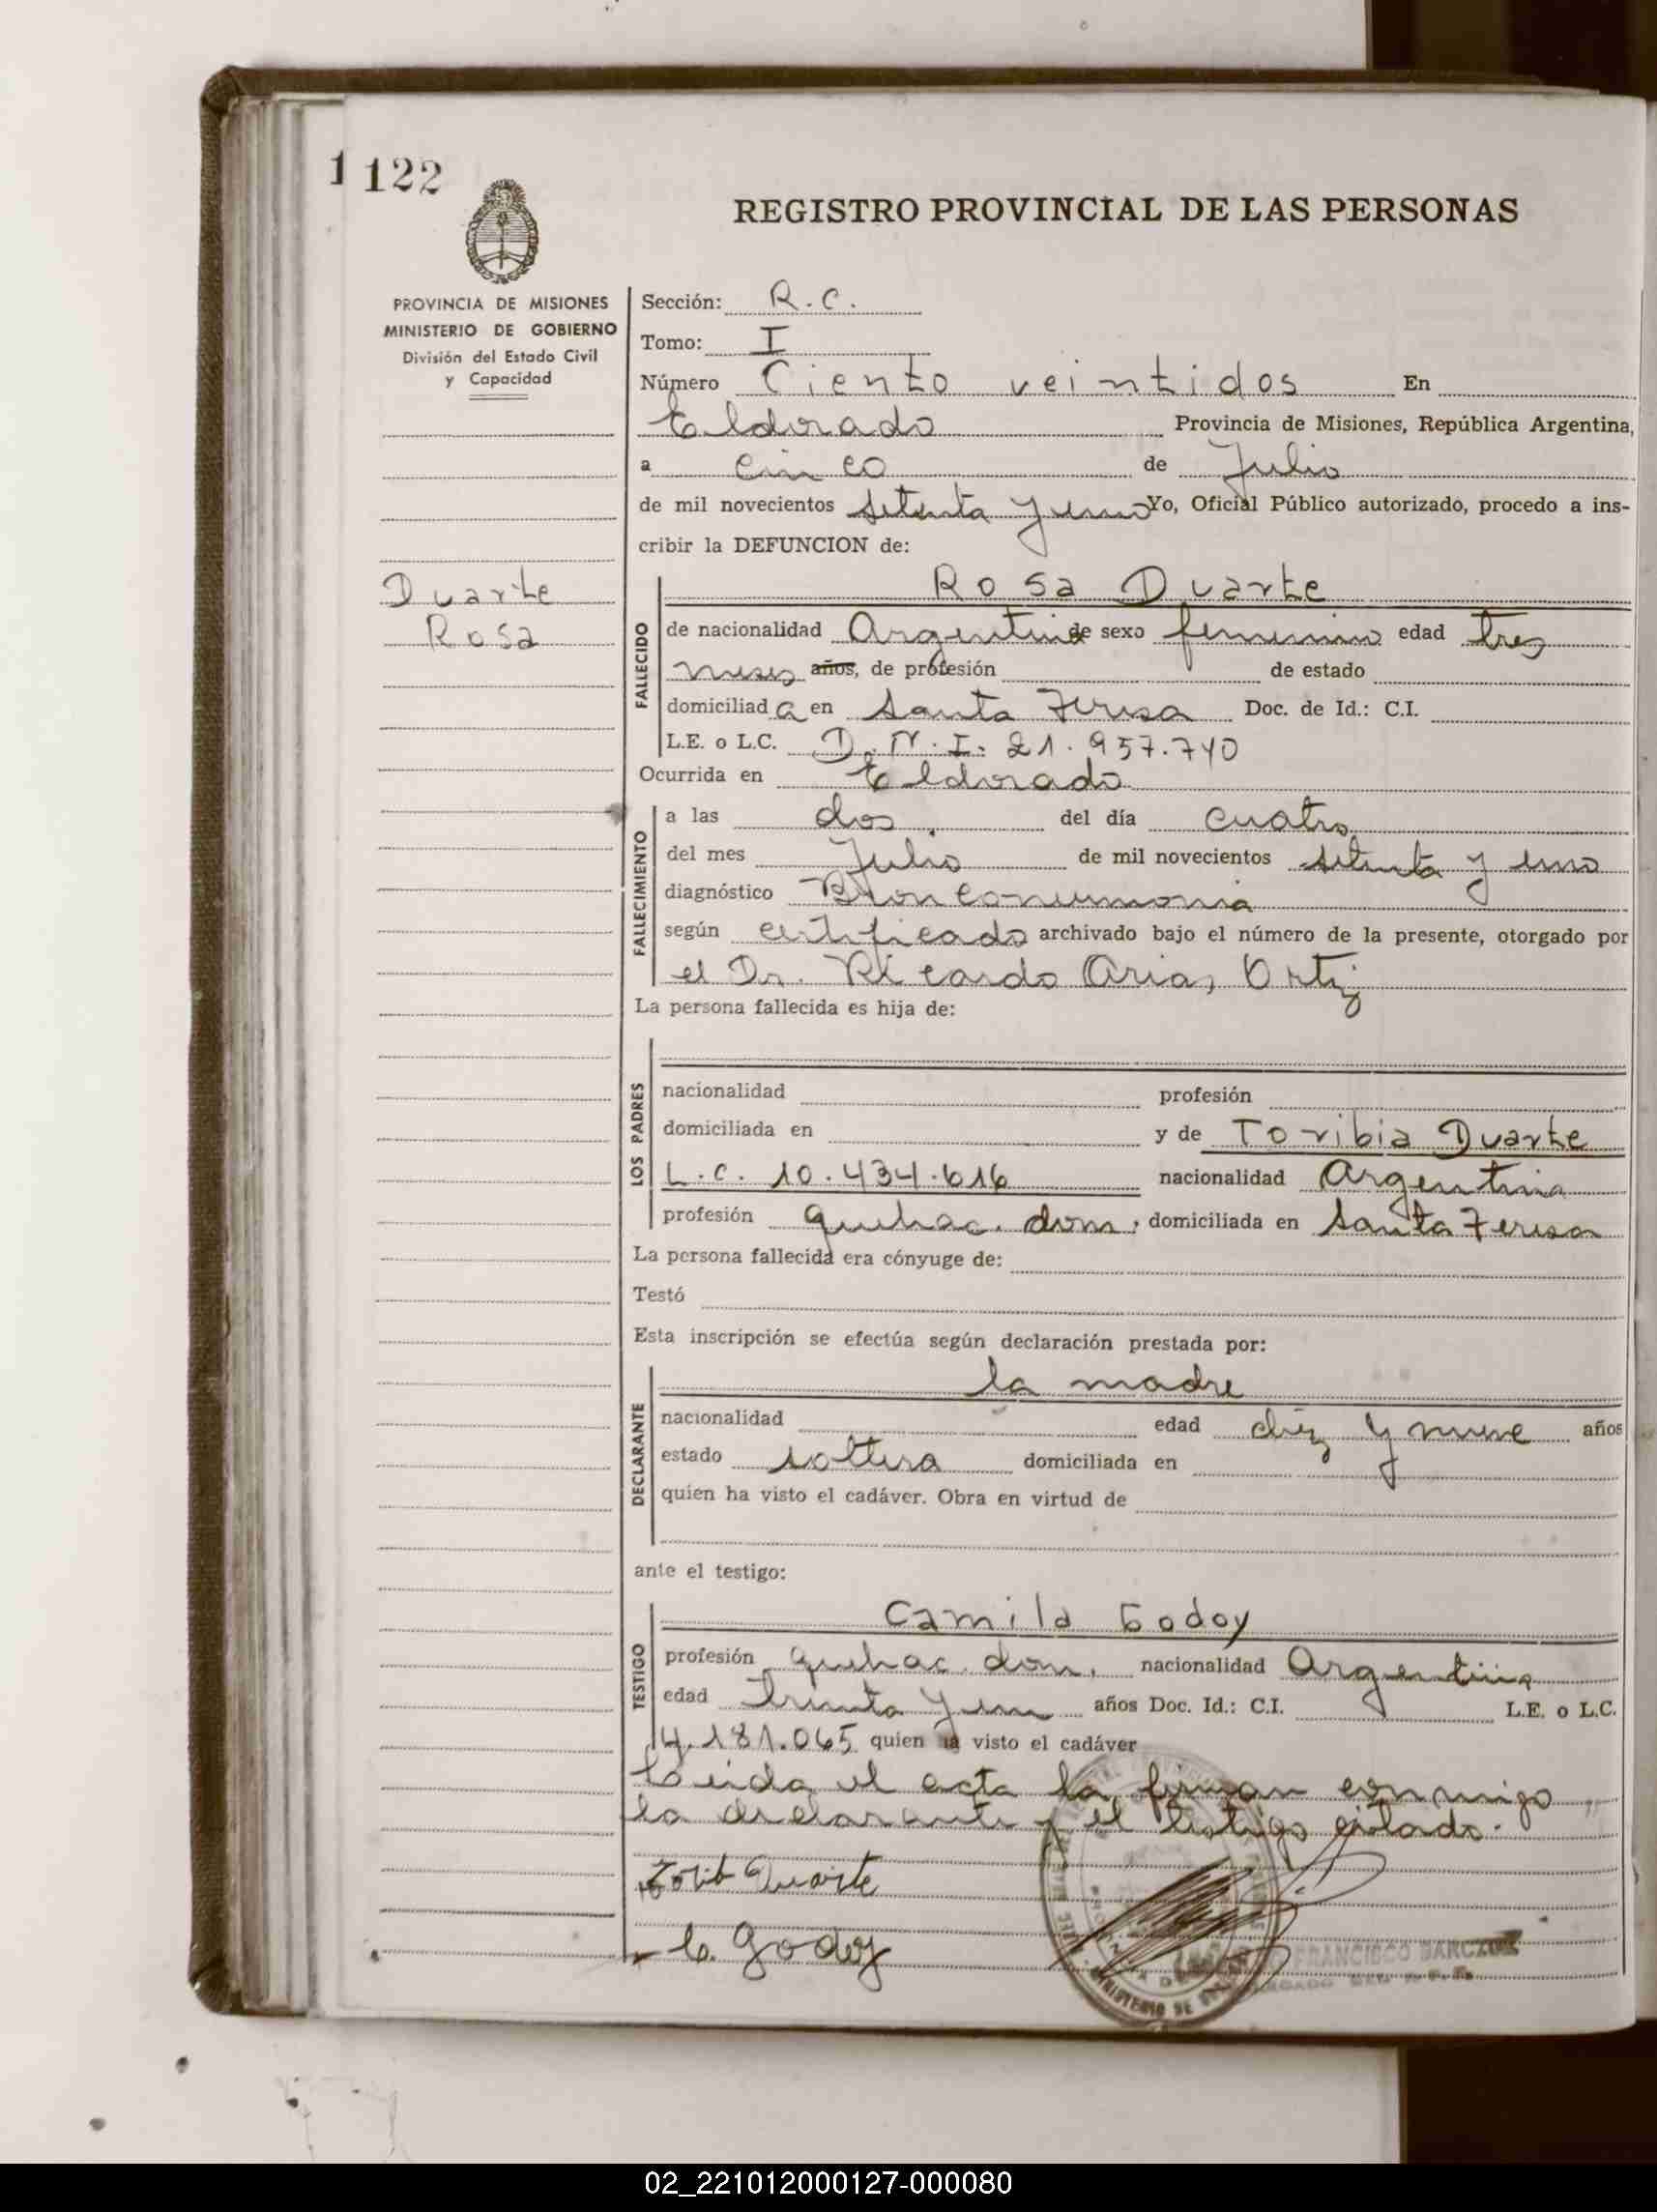 1 122
REGISTRO PROVINCIAL DE LAS PERSONAS
PROVINCIA DE MISIONES
MINISTERIO DE GOBIERNO
División del Estado Civil
y Capacidad
Duarte
Rosa
Sección: R.C.
Tomo: I
Número Ciento veintidos En
Eldorado Provincia de Misiones, República Argentina,
a cinco de Julio
de mil novecientos setenta y uno Yo, Oficial Público autorizado, procedo a ins-
cribir la DEFUNCION de:
FALLECIDO
Rosa Duarte
de nacionalidad Argentina de sexo femenino edad tres
meses años, de profesión de estado
domiciliada en Santa Teresa Doc. de Id.: C.I.
L.E. o L.C. D.N.I: 21.957.740
Ocurrida en Eldorado
FALLECIMIENTO
a las dos del día cuatro
del mes Julio de mil novecientos setenta y uno
diagnóstico Bronconeumonia
según certificado archivado bajo el número de la presente, otorgado por
el Dr. Ricardo Arias Ortiz
La persona fallecida es hija de:
LOS PADRES
nacionalidad profesión
domiciliada en y de Toribia Duarte
L.C. 10.434.616 nacionalidad Argentina
profesión quehac. dom. domiciliada en Santa Teresa
La persona fallecida era cónyuge de:
Testó
Esta inscripción se efectúa según declaración prestada por:
DECLARANTE
la madre
nacionalidad edad diez y nueve años
estado soltera domiciliada en
quien ha visto el cadáver. Obra en virtud de
ante el testigo:
TESTIGO
Camila Godoy
profesión quehac. dom. nacionalidad Argentina
edad treinta y un años Doc. Id.: C.I. L.E. o L.C.
4.181.065 quien ha visto el cadáver
Leida el acta la firman conmigo
la declarante y el testigo citado.
Torib Duarte
C. Godoy
FRANCISCO
MINISTERIO DE
02_221012000127-000080